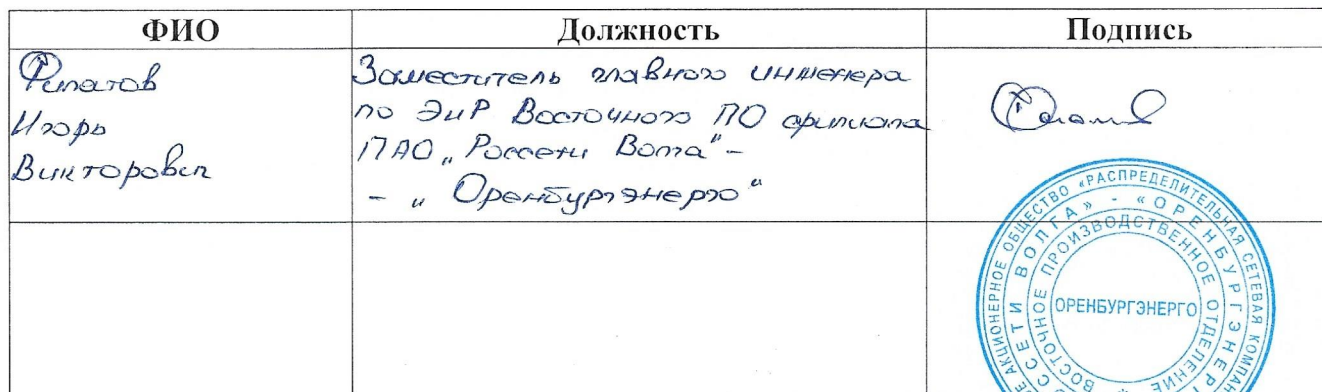 ФИО
Должность
Подпись
Филатов
Игорь
Викторович
Заместитель главного инженера
по ЭиР Восточного ПО филиала
ПАО „Россети Волга" -
- „Оренбургэнерго"
АКЦИОНЕРНОЕ ОБЩЕСТВО «РАСПРЕДЕЛИТЕЛЬНАЯ СЕТЕВАЯ
ВОЛГА» - «ОРЕНБУРГЭНЕРГ
ВОСТОЧНОЕ ПРОИЗВОДСТВЕННОЕ ОТДЕЛЕНИЕ
ОРЕНБУРГЭНЕРГО